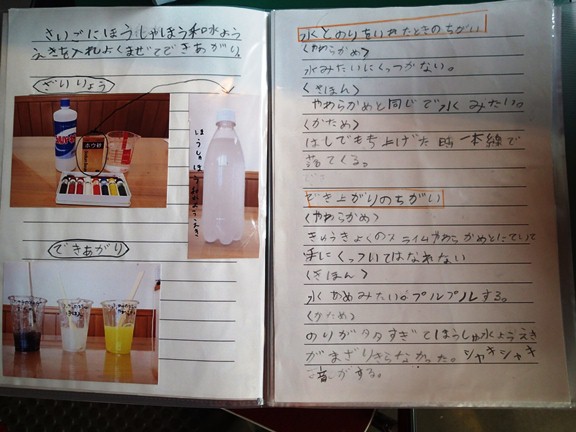 さいごにほうしゃほう和水よう
えきを入れよくまぜてできあがり。
ざいりょう
ほうしゃほう和水ようえき
できあがり
水とのりをいれたときのちがい
〈やわらかめ〉
水みたいにくっつかない。
〈きほん〉
やわらかめと同じで水みたい。
〈かため〉
はしでもち上げた時一本線で
落てくる。
でき上がりのちがい
〈やわらかめ〉
きゅうきょくのスライムやわらかめとにていて
手にくっついてはなれない
〈きほん〉
水かめみたい。プルプルする。
〈かため〉
のりが多すぎてほうしゃ水ようえき
がまざりきらなかった。シャキシャキ
音がする。